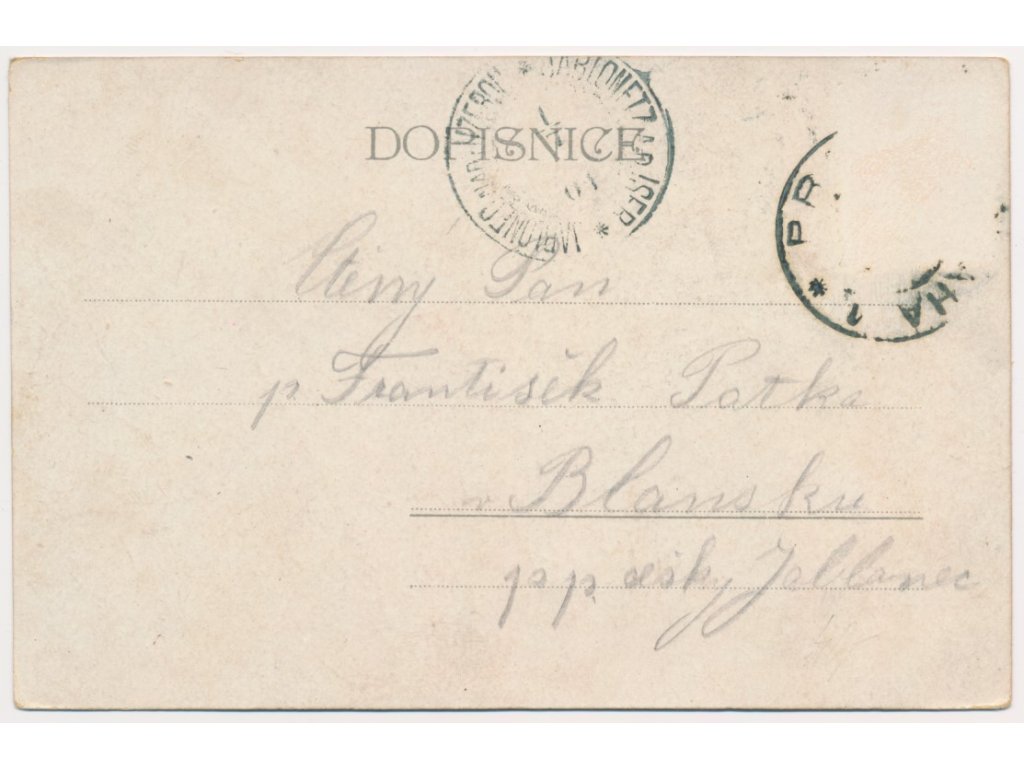 DOPISNICE
* JABLONETZ A. D. ISER * JABLONEC NAD JIZEROU
* PR HA 1
Ctěny Pan
p František Patka
v Blansku
p česky Jablonec